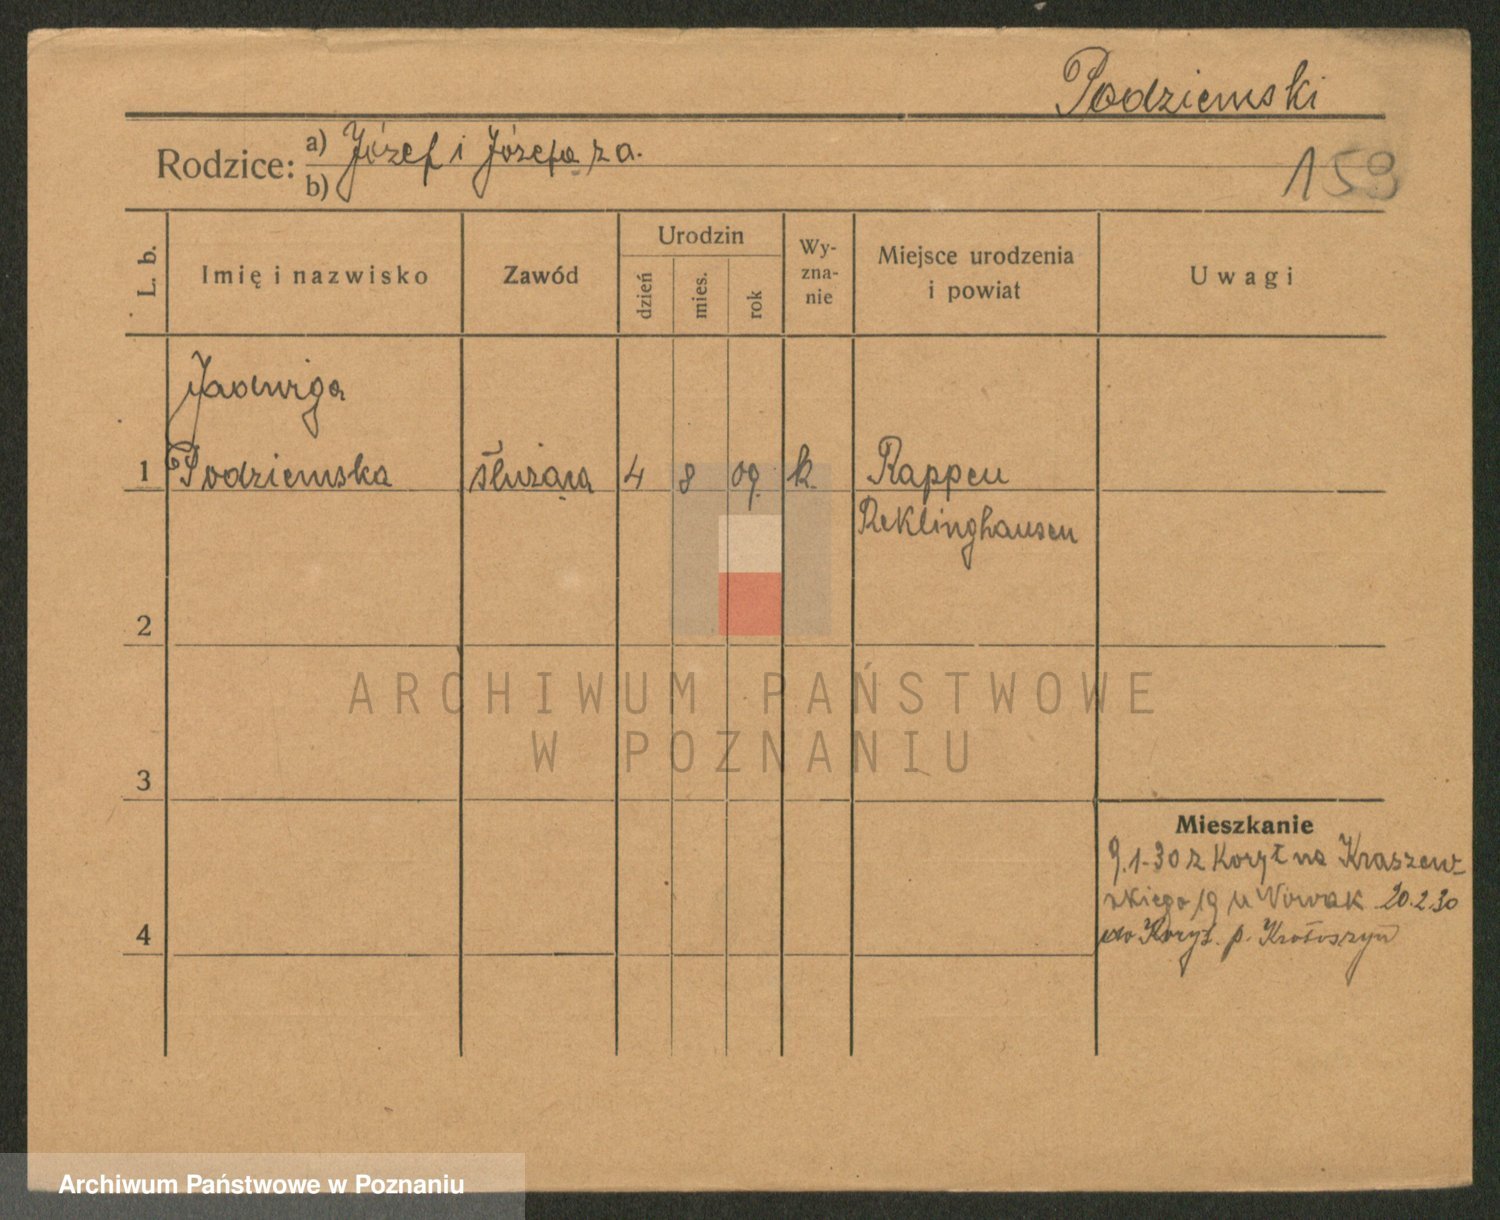 Podziemski
Rodzice: a) Józef i Józefa z a.
b)
159
L. b.
Imię i nazwisko
Zawód
Urodzin
dzień
mies.
rok
Wy-
zna-
nie
Miejsce urodzenia
i powiat
Uwagi
Jadwiga
1 Podziemska służąca 4 8 09. k. Rappen
Reklinghausen
2
3
4
Mieszkanie
9.1-30 z Koryt na Kraszew-
skiego 19 u Nowak 20.2.30
do Koryt. p. Krotoszyn
ARCHIWUM PAŃSTWOWE
W POZNANIU
Archiwum Państwowe w Poznaniu